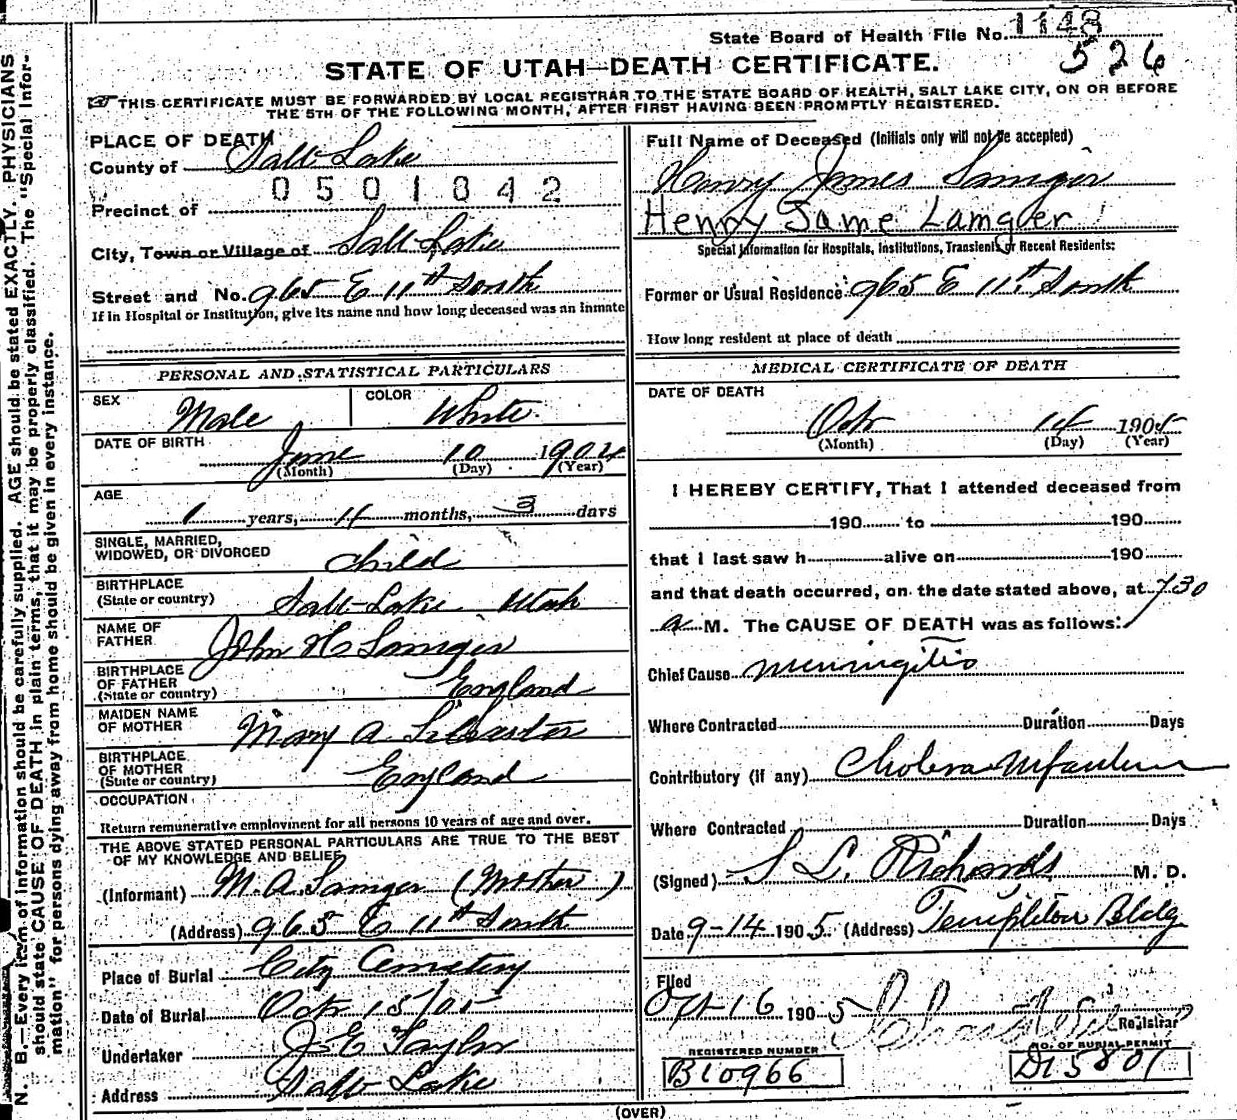 State Board of Health File No. 1148
526
STATE OF UTAH—DEATH CERTIFICATE.
THIS CERTIFICATE MUST BE FORWARDED BY LOCAL REGISTRAR TO THE STATE BOARD OF HEALTH, SALT LAKE CITY, ON OR BEFORE
THE 5TH OF THE FOLLOWING MONTH, AFTER FIRST HAVING BEEN PROMPTLY REGISTERED.
N. B.—Every item of information should be carefully supplied. AGE should be stated EXACTLY. PHYSICIANS
should state CAUSE OF DEATH in plain terms, that it may be properly classified. The "Special Infor-
mation" for persons dying away from home should be given in every instance.
PLACE OF DEATH
County of Salt Lake
0501842
Precinct of
City, Town or Village of Salt Lake
Street and No. 965 E 11th South
If in Hospital or Institution, give its name and how long deceased was an inmate
Full Name of Deceased (Initials only will not be accepted)
Henry James
Henry Jame Lamger
Special Information for Hospitals, Institutions, Transients or Recent Residents:
Former or Usual Residence 965 E 11th South
How long resident at place of death
PERSONAL AND STATISTICAL PARTICULARS
SEX Male COLOR White
DATE OF BIRTH June 10 1904
(Month) (Day) (Year)
AGE
1 years, 4 months, 3 days
SINGLE, MARRIED,
WIDOWED, OR DIVORCED child
BIRTHPLACE
(State or country) Salt Lake Utah
NAME OF
FATHER John H
BIRTHPLACE
OF FATHER
(State or country) England
MAIDEN NAME
OF MOTHER Mary A.
BIRTHPLACE
OF MOTHER
(State or country) England
OCCUPATION
Return remunerative employment for all persons 10 years of age and over.
THE ABOVE STATED PERSONAL PARTICULARS ARE TRUE TO THE BEST
OF MY KNOWLEDGE AND BELIEF
(Informant) M. A. (Mother)
(Address) 965 E 11th South
Place of Burial City Cemetery
Date of Burial Oct 15/05
Undertaker J E Taylor
Address Salt Lake
MEDICAL CERTIFICATE OF DEATH
DATE OF DEATH
Oct 14 1905
(Month) (Day) (Year)
I HEREBY CERTIFY, That I attended deceased from
190 to 190
that I last saw h alive on 190
and that death occurred, on the date stated above, at 730
a M. The CAUSE OF DEATH was as follows:
Chief Cause meningitis
Where Contracted Duration Days
Contributory (if any) Cholera Infantum
Where Contracted Duration Days
(Signed) S. L. Richards M. D.
Date 9-14 1905 (Address) Templeton Bldg
Filed
Oct 16 1905 Registrar
REGISTERED NUMBER
B10966
NO. OF BURIAL PERMIT
D15801
(OVER)